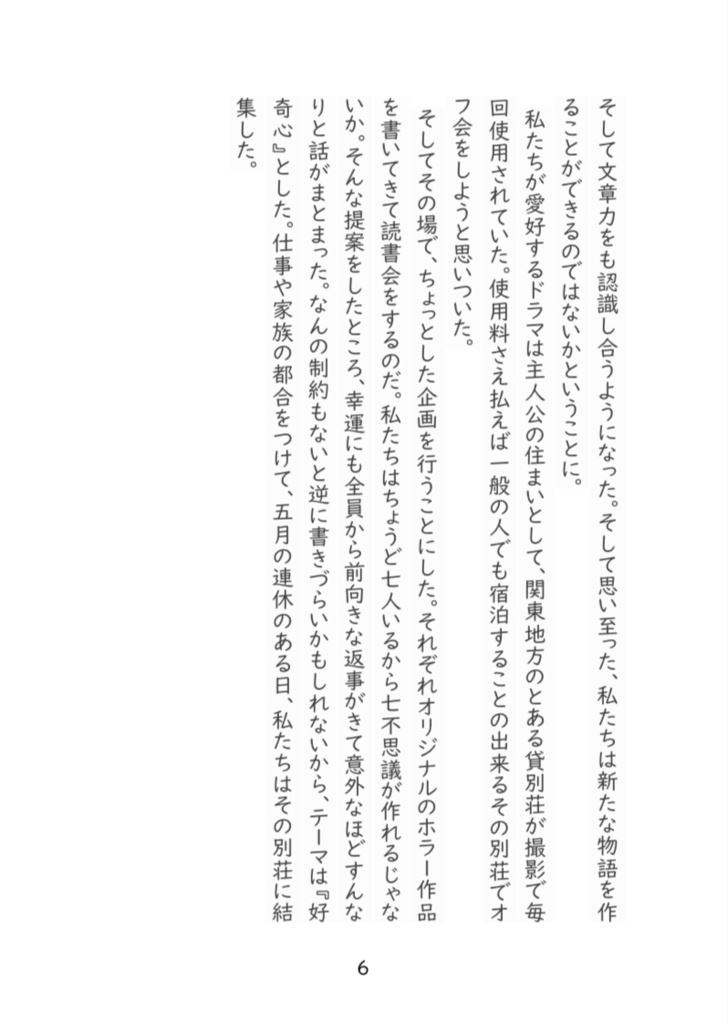 そして文章力をも認識し合うようになった。そして思い至った、私たちは新たな物語を作
ることができるのではないかということに。
私たちが愛好するドラマは主人公の住まいとして、関東地方のとある貸別荘が撮影で毎
回使用されていた。使用料さえ払えば一般の人でも宿泊することの出来るその別荘でオ
フ会をしようと思いついた。
そしてその場で、ちょっとした企画を行うことにした。それぞれオリジナルのホラー作品
を書いてきて読書会をするのだ。私たちはちょうど七人いるから七不思議が作れるじゃな
いか。そんな提案をしたところ、幸運にも全員から前向きな返事がきて意外なほどすんな
りと話がまとまった。なんの制約もないと逆に書きづらいかもしれないから、テーマは『好
奇心』とした。仕事や家族の都合をつけて、五月の連休のある日、私たちはその別荘に結
集した。
6